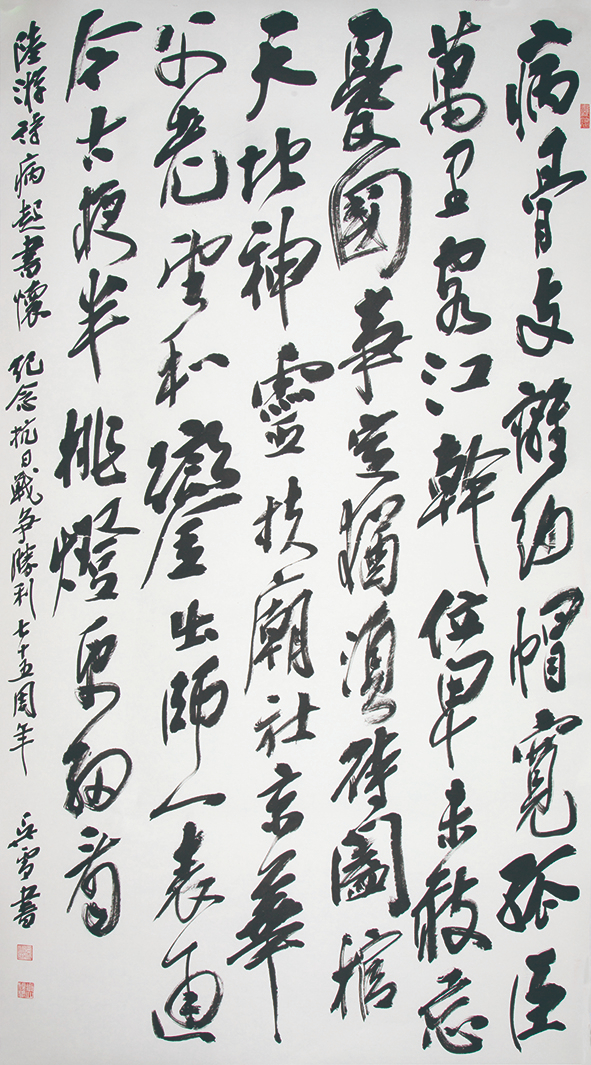 病骨支離紗帽寬孤臣
萬里客江幹位卑未敢忘
憂國事定猶須待闔棺
天地神靈扶廟社京華
父老望和鑾出師一表通
今古夜半挑燈更細看
陸游詩病起書懷 纪念抗日戰争勝利七十五周年 書